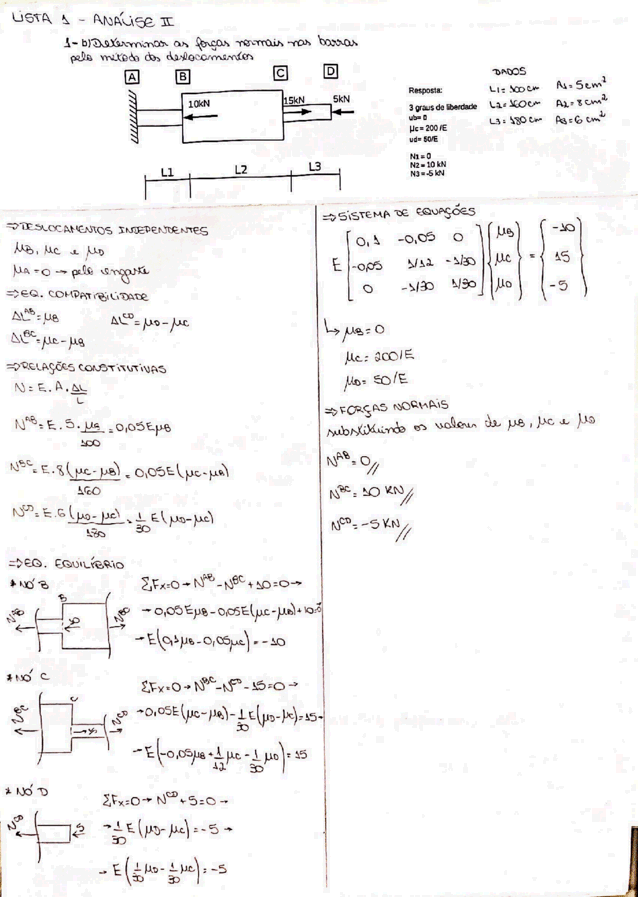 LISTA 1 - ANÁLISE II
1-b) Determinar as forças normais nas barras
pelo método dos deslocamentos
A B C D
10kN 15kN 5kN
L1 L2 L3
Resposta:
3 graus de liberdade
ub= 0
μc = 200 /E
ud= 50/E
N1 = 0
N2 = 10 kN
N3 = -5 kN
DADOS
L1= 100 cm A1= 5 cm²
L2= 160 cm A2= 8 cm²
L3= 180 cm A3= 6 cm²
⇒ DESLOCAMENTOS INDEPENDENTES
μB, μC e μD
μA = 0 → pelo engaste
⇒ EQ. COMPATIBILIDADE
ΔL^AB = μB ΔL^CD = μD - μC
ΔL^BC = μC - μB
⇒ RELAÇÕES CONSTITUTIVAS
N = E. A. ΔL/L
N^AB = E. 5. μB/100 = 0,05EμB
N^BC = E. 8(μC - μB)/160 = 0,05E(μC - μB)
N^CD = E. 6(μD - μC)/180 = 1/30 E(μD - μC)
⇒ EQ. EQUILÍBRIO
* NÓ B ΣFx=0 → N^AB - N^BC + 10 = 0 →
B N^AB 10 N^BC
→ 0,05EμB - 0,05E(μC - μB) + 10 = 0
→ E(0,1μB - 0,05μC) = -10
* NÓ C ΣFx=0 → N^BC - N^CD - 15 = 0 →
C N^BC 15 N^CD
→ 0,05E(μC - μB) - 1/30 E(μD - μC) = 15 →
→ E(-0,05μB + 1/12 μC - 1/30 μD) = 15
* NÓ D ΣFx=0 → N^CD + 5 = 0 →
N^CD 5
→ 1/30 E(μD - μC) = -5 →
→ E(1/30 μD - 1/30 μC) = -5
⇒ SISTEMA DE EQUAÇÕES
E [ 0,1 -0,05 0 ] { μB } = { -10 }
[ -0,05 1/12 -1/30 ] { μC } { 15 }
[ 0 -1/30 1/30 ] { μD } { -5 }
↳ μB = 0
μC = 200/E
μD = 50/E
⇒ FORÇAS NORMAIS
substituindo os valores de μB, μC e μD
N^AB = 0 //
N^BC = 10 KN //
N^CD = -5 KN //